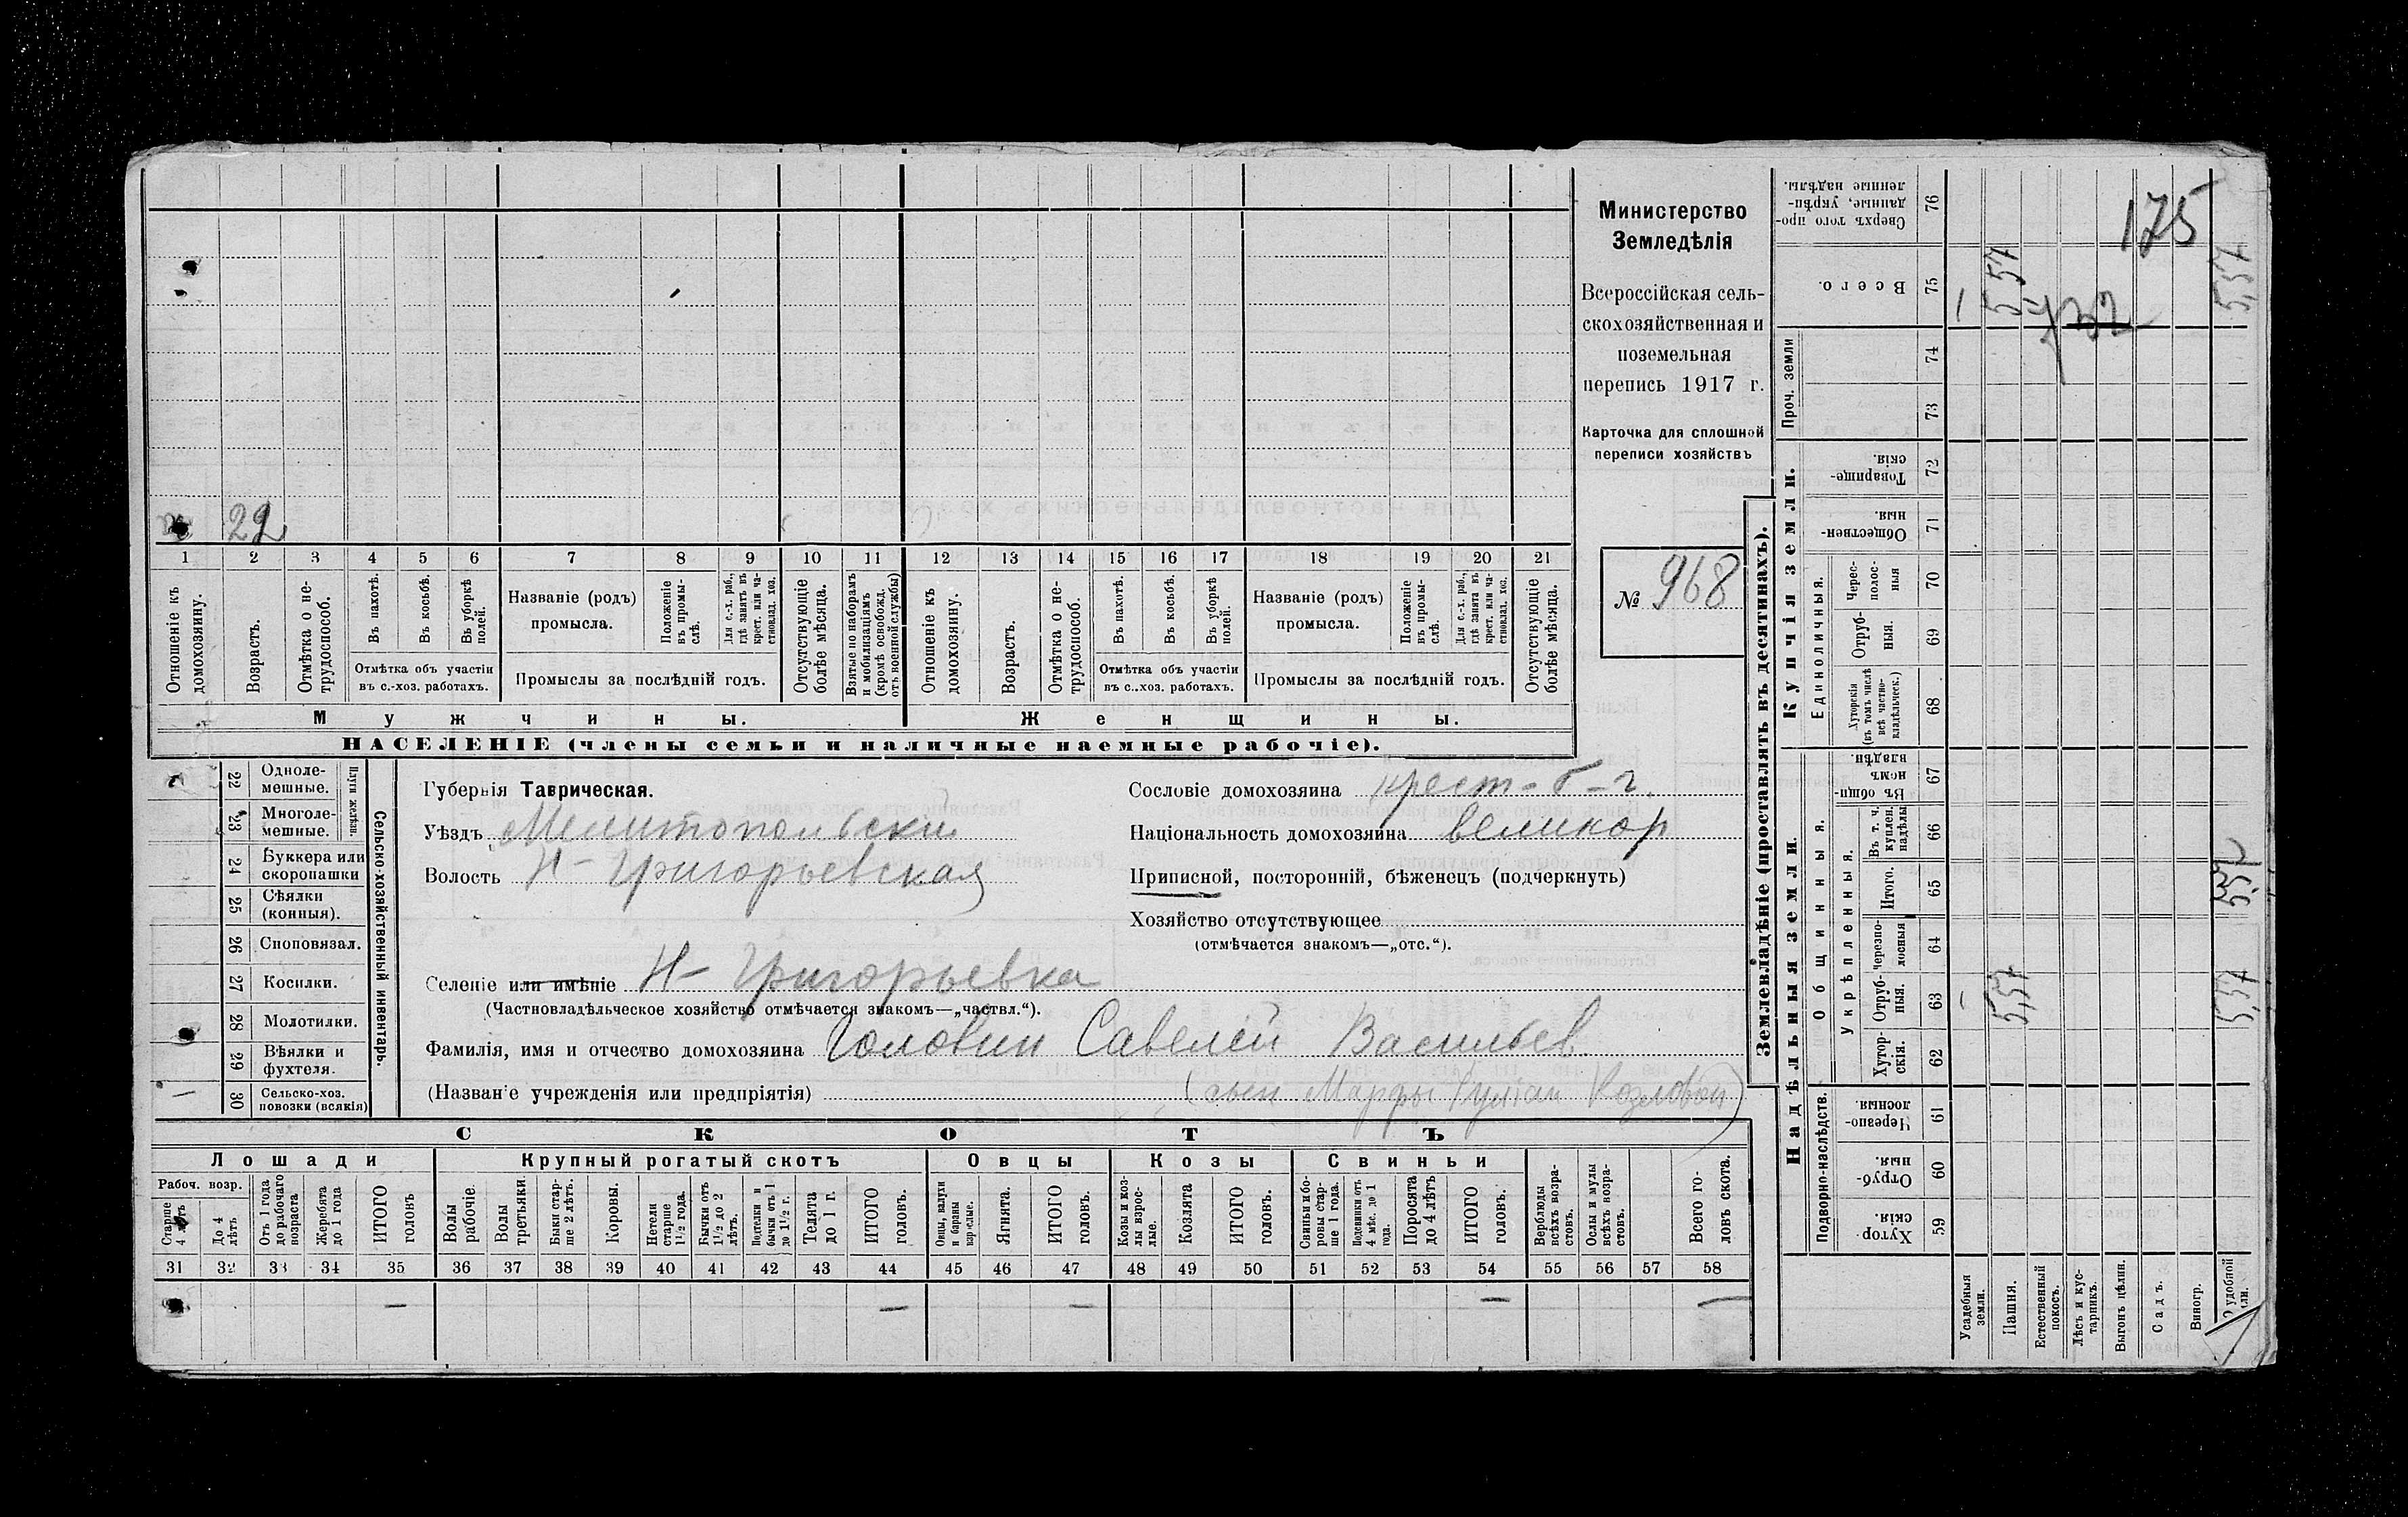 Министерство
Земледѣлія
Всероссійская сель-
скохозяйственная и
поземельная
перепись 1917 г.
Карточка для сплошной
переписи хозяйствъ
№ 968
22
1 2 3 4 5 6 7 8 9 10 11 12 13 14 15 16 17 18 19 20 21
Отношеніе къ домохозяину.
Возрастъ.
Отмѣтка о не-трудоспособ.
Въ пахотѣ.
Въ косьбѣ.
Въ уборкѣ полей.
Отмѣтка объ участіи
въ с.-хоз. работахъ.
Названіе (родъ)
промысла.
Положеніе въ промы-слѣ.
Для с.-х. раб., гдѣ занятъ въ крест. или ча-стновлад. хоз.
Промыслы за послѣдній годъ.
Отсутствующіе болѣе мѣсяца.
Взятые по наборамъ и мобилизаціямъ (кромѣ освобожд. отъ военной службы)
Отношеніе къ домохозяину.
Возрастъ.
Отмѣтка о не-трудоспособ.
Въ пахотѣ.
Въ косьбѣ.
Въ уборкѣ полей.
Отмѣтка объ участіи
въ с..хоз. работахъ.
Названіе (родъ)
промысла.
Положеніе въ промы-слѣ.
Для с.-х. раб., гдѣ занята въ крест. или ча-стновлад. хоз.
Промыслы за послѣдній годъ.
Отсутствующіе болѣе мѣсяца.
Мужчины.
Женщины.
НАСЕЛЕНІЕ (члены семьи и наличные наемные рабочіе).
22 Одноле-мешные.
23 Многоле-мешные.
Плуги желѣзн.
24 Буккера или скоропашки
25 Сѣялки (конныя).
26 Споповязал.
27 Косилки.
28 Молотилки.
29 Вѣялки и фухтеля.
— 30 Сельско-хоз. повозки (всякія)
Сельско-хозяйственный инвентарь.
Губернія Таврическая.
Уѣздъ Мелитопольски
Волость Н-Григорьевская
Сословіе домохозяина крест-б-г.
Національность домохозяина великор
Приписной, посторонній, бѣженецъ (подчеркнуть)
Хозяйство отсутствующее
(отмѣчается знакомъ—„отс.“).
Селеніе или имѣніе Н-Григорьевка
(Частновладѣльческое хозяйство отмѣчается знакомъ—„частвл.“).
Фамилія, имя и отчество домохозяина Головин Савелей Васильев.
(Названіе учрежденія или предпріятія) (сын Марфы Козловой)
СКОТЪ
Лошади
Крупный рогатый скотъ
Овцы
Козы
Свиньи
Рабоч. возр.
Старше 4 лѣтъ
До 4 лѣтъ
Отъ 1 года до рабочаго возраста
Жеребята до 1 года
ИТОГО головъ
Волы рабочіе.
Волы третьяки.
Быки стар-ше 2 лѣтъ.
Коровы.
Нетели старше 1½ года.
Бычки отъ 1½ до 2 лѣтъ.
Подтелки и бычки отъ 1 до 1½ г.
Телята до 1 г.
ИТОГО головъ.
Овцы, валухи и бараны взрослые.
Ягнята.
ИТОГО головъ.
Козы и коз-лы взрос-лые.
Козлята
ИТОГО головъ.
Свиньи и бо-ровы стар-ше 1 года.
Подсвинки отъ 4 мѣс. до 1 года.
Поросята до 4 лѣтъ
ИТОГО головъ.
Верблюды всѣхъ возра-стовъ.
Ослы и мулы всѣхъ возра-стовъ.
Всего го-ловъ скота.
31 32 33 34 35 36 37 38 39 40 41 42 43 44 45 46 47 48 49 50 51 52 53 54 55 56 57 58
— — — — —
Землевладѣніе (проставлять въ десятинахъ).
Надѣльныя земли.
Купчія земли.
Проч. земли
Подворно-наслѣдств.
Общинныя.
Укрѣпленныя.
Единоличныя.
Хутор-скія. 59
Отруб-ныя. 60
Черезпо-лосныя. 61
Хутор-скія. 62
Отруб-ныя. 63
Черезпо-лосныя 64
Итого. 65
Въ т. ч. куплен. надѣлы 66
Въ общи-номъ владѣн. 67
Хуторскія (въ томъ числѣ всѣ частно-владѣльческ.) 68
Отруб-ныя. 69
Черес-полос-ныя 70
Обществен-ныя. 71
Товарище-скія. 72
73
74
Всего. 75
Сверхъ того про-данные, укрѣп-ленные надѣлы. 76
Усадебныя земли.
Пашня.
Естественный покосъ.
Лѣсъ и кус-тарникъ.
Выгонъ цѣлин.
Садъ.
Виногр.
удобной
5,57
5,57
5,57
5,57
732
175